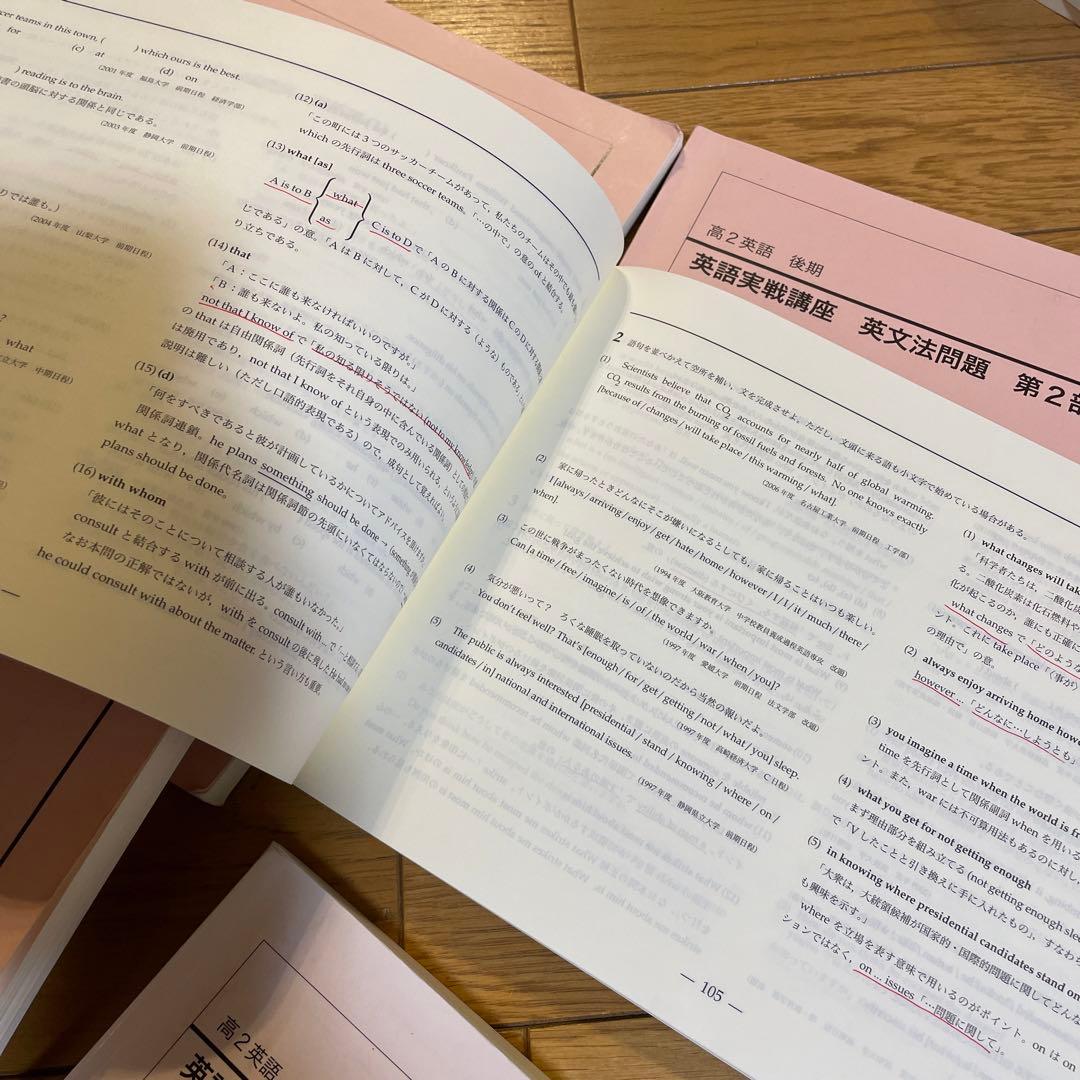 cer teams in this town, ( ) which ours is the best.
for (c) at (d) on
(2001年度 福島大学 前期日程 経済学部)
) reading is to the brain.
書の頭脳に対する関係と同じである。
(2003年度 静岡大学 前期日程)
りでは誰も。)
(2004年度 山梨大学 前期日程)
?
what
立大学 中期日程)
(12) (a)
「この町には3つのサッカーチームがあって,私たちのチームはその中でも最も
which の先行詞は three soccer teams.「…の中で」の意の of と結合する。
(13) what [as]
A is to B { what as } C is to D で「A の B に対する関係は C の D に対する関
じである」の意。「A は B に対して,C が D に対する(ような)ものである。」
り立ちである。
(14) that
「A:ここに誰も来なければいいのですが。」
「B:誰も来ないよ。私の知っている限りは。」
not that I know of で「私の知る限りそうではない(not to my knowledge)
の that は自由関係詞(先行詞をそれ自身の中に含んでいる関係詞)としての
は廃用であり,not that I know of という表現でのみ用いられる,という
説明は難しい(ただし口語的表現である)ので,成句として覚えればよい
(15) (d)
「何をすべきであると彼が計画しているかについてアドバイスを
関係詞連鎖。he plans something should be done → (something が
what となり,関係代名詞は関係詞節の先頭にいなくてはならないので
plans should be done.
(16) with whom
「彼にはそのことについて相談する人が誰もいなかった。」
consult と結合する with が前に出る。consult with ~で「~と相談する」
なお本問の正解ではないが,with を consult の後に残した He had no one
he could consult with about the matter. という言い方も重要。
高2英語 後期
英語実戦講座 英文法問題 第2部
2 語句を並べかえて空所を補い,文を完成させよ。ただし,文頭に来る語も小文字で始めている場合がある。
(1) Scientists believe that CO2 accounts for nearly half of global warming.
CO2 results from the burning of fossil fuels and forests. No one knows exactly
[because of / changes / will take place / this warming / what].
(2006年度 名古屋工業大学 前期日程 工学部)
(2) 家に帰ったときどんなにそこが嫌いになるとしても,家に帰ることはいつも楽しい。
I [always / arriving / enjoy / get / hate / home / however / I / I / it / much / there /
when].
(1994年度 大阪教育大学 中学校教員養成過程英語専攻 改題)
(3) この世に戦争がまったくない時代を想像できますか。
Can [a time / free / imagine / is / of / the world / war / when / you]?
(1997年度 愛媛大学 前期日程 法文学部 改題)
(4) 気分が悪いって? ろくな睡眠を取っていないのだから当然の報いだよ。
You don't feel well? That's [enough / for / get / getting / not / what / you] sleep.
(1997年度 高崎経済大学 C日程)
(5) The public is always interested [presidential / stand / knowing / where / on /
candidates / in] national and international issues.
(1997年度 静岡県立大学 前期日程)
(1) what changes will take
「科学者たちは,二酸化炭
る。二酸化炭素は化石燃料や
化が起こるのか,誰にも正確に
what changes で「どのような
ント。これに take place「(事が)
の理由で」の意。
(2) always enjoy arriving home how
however …「どんなに…しようとも」
(3) you imagine a time when the world is fr
time を先行詞として関係副詞 when を用いる
ント。また,war には不可算用法もあるのに対し,
(4) what you get for not getting enough
まず理由部分を組み立てる(not getting enough slee
で「V したことと引き換えに手に入れたもの」,すなわち
(5) in knowing where presidential candidates stand on
「大衆は,大統領候補が国家的・国際的問題に関してどんな
も興味を示す。」
where を立場を表す意味で用いるのがポイント。on は on
ションではなく,on … issues「…問題に関して」。
— 105 —
高2英語